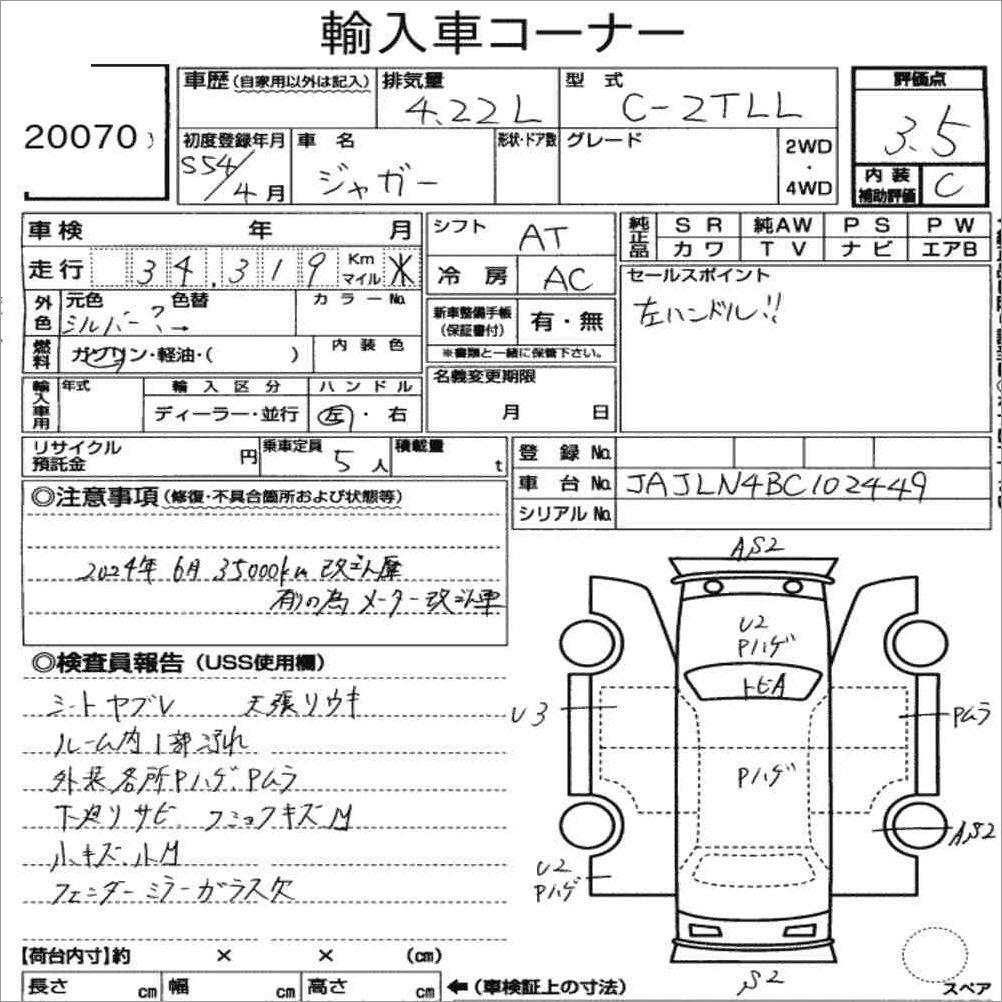 輸入車コーナー
20070
車歴(自家用以外は記入) 排気量 4.22L 型式 C-2TLL 評価点 3.5
初度登録年月 S54/4月 車名 ジャガー 形状・ドア数 グレード 2WD・4WD 内装補助評価 C
車検 年 月 シフト AT 純正品 SR 純AW PS PW
カワ TV ナビ エアB
走行 34,319 Km マイル ※ 冷房 AC セールスポイント
左ハンドル!!
外色 元色 シルバー? → 色替 カラーNo. 新車整備手帳(保証書付) 有・無
※書類と一緒に保管下さい。
燃料 ガソリン・軽油・( ) 内装色
輸入車用 年式 輸入区分 ハンドル 名義変更期限
ディーラー・並行 左・右 月 日
リサイクル預託金 円 乗車定員 5人 積載量 t 登録No.
車台No. JAJLN4BC102449
シリアルNo.
◎注意事項(修復・不具合箇所および状態等)
2024年 6月 35000km 改ざん歴
有りの為 メーター改ざん車
◎検査員報告(USS使用欄)
シートヤブレ 天張りウキ
ルーム内1部汚れ
外装各所Pハゲ.Pムラ
下廻りサビ.
小キズ.小M
フェンダーミラーガラス欠
A,S2
U2
Pハゲ
トビA
U3
Pムラ
Pハゲ
A,S2
U2
Pハゲ
S2
スペア
【荷台内寸】約 × × (cm)
長さ cm 幅 cm 高さ cm ←(車検証上の寸法)